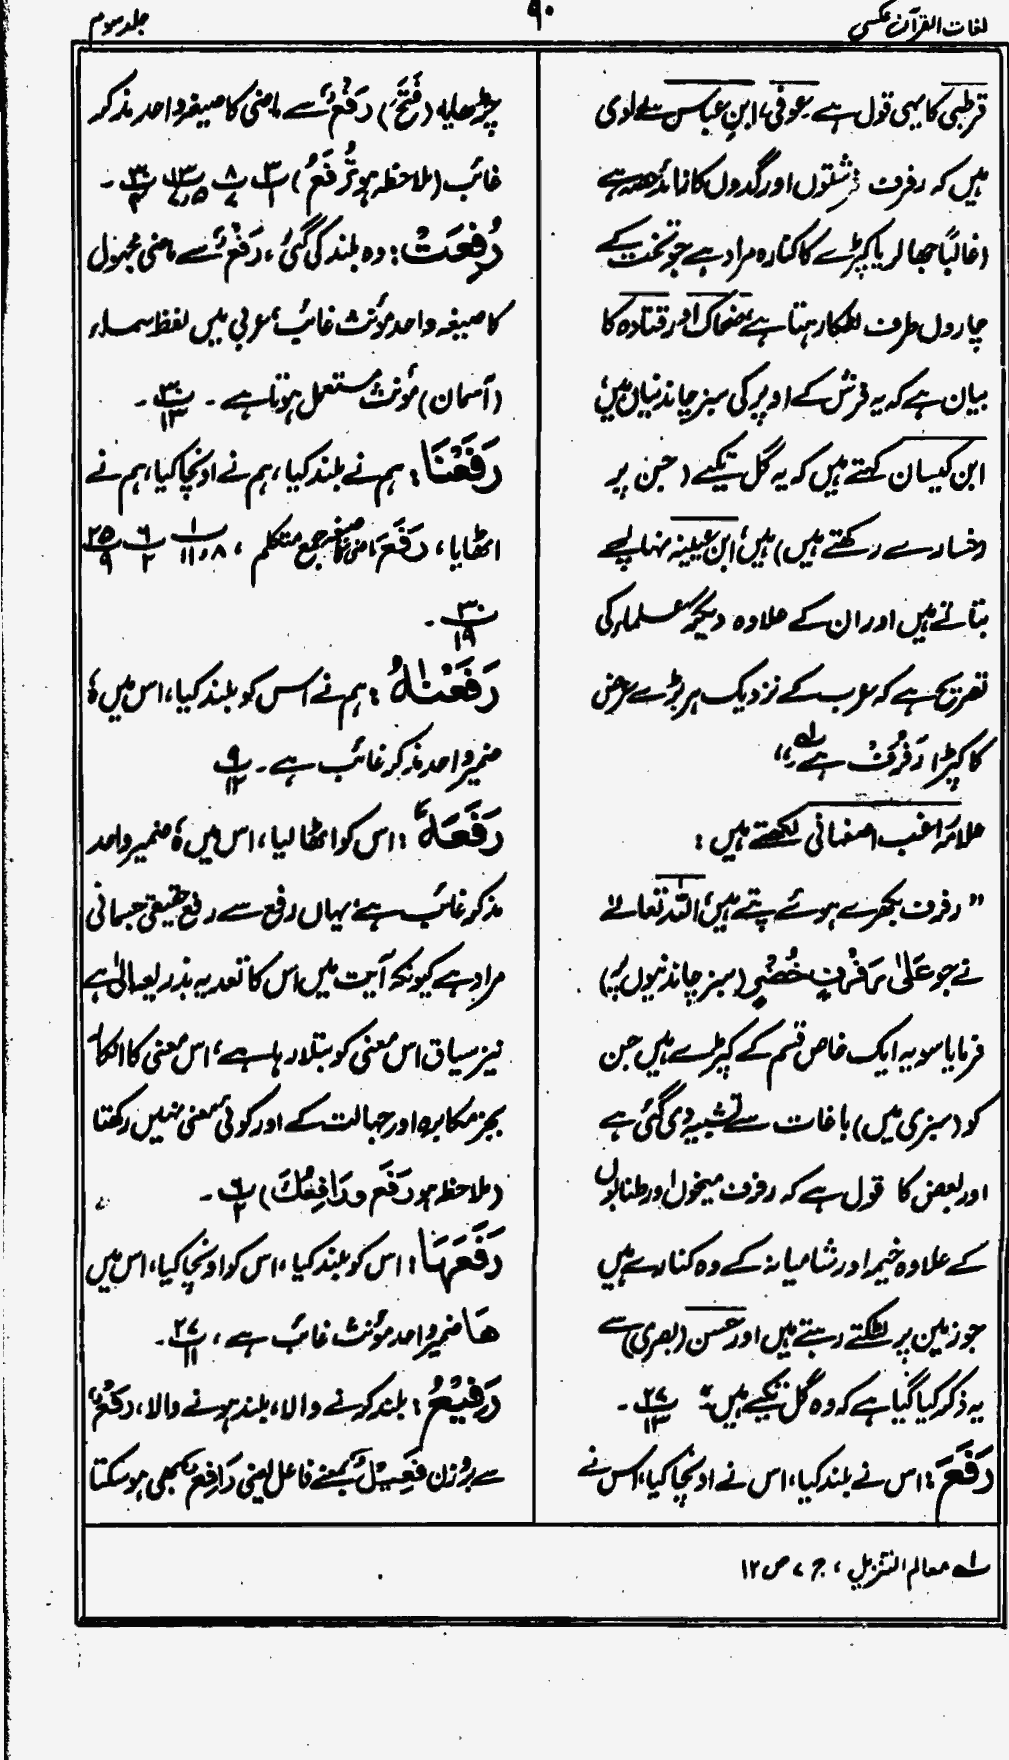 لغات القرآن عکسی
۹۰
جلد سوم
قرظی کا یہی قول ہے عوفی، ابنِ عباس سے راوی
ہیں کہ رفرف فرشتوں اور گدوں کا زائد حصہ ہے
(غالباً جھالر یا کپڑے کا کنارہ مراد ہے جو تخت کے
چاروں طرف لٹکا رہتا ہے، ضحاک اور قتادہ کا
بیان ہے کہ یہ فرش کے اوپر کی سبز چاندنیاں ہیں،
ابن کیسان کہتے ہیں کہ یہ گل تکیے (جن پر
رخسارے رکھتے ہیں) ہیں، ابن عیینہ نہالچے
بتاتے ہیں اور ان کے علاوہ دیگر علماء کی
تصریح ہے کہ عرب کے نزدیک ہر بڑے عرض
کا کپڑا رَفْرَفْ ہے ؎۱،،
علامۂ راغب اصفہانی لکھتے ہیں :
” رفرف بکھرے ہوئے پتے ہیں، اللہ تعالےٰ
نے جو عَلٰی رَفْرَفٍ خُضْرٍ (سبز چاندنیوں پر)
فرمایا سو یہ ایک خاص قسم کے کپڑے ہیں جن
کو (سبزی میں) باغات سے تشبیہ دی گئی ہے
اور بعض کا قول ہے کہ رفرف میخوں اور طنابوں
کے علاوہ خیمہ اور شامیانہ کے وہ کنارے ہیں
جو زمین پر لٹکتے رہتے ہیں اور حسن (بصری) سے
یہ ذکر کیا گیا ہے کہ وہ گل تکیے ہیں“ ۲۷/۱۳ ۔
رَفَعَ : اس نے بلند کیا، اس نے اونچا کیا، اس نے
چڑھایا، (فَتَحَ) رَفْعٌ سے ماضی کا صیغہ واحد مذکر
غائب (ملاحظہ ہو تُرْفَعُ) ۳/۱ ۸/۷ ۱۳/۵،۷ ۳۰/۳ ۔
رُفِعَتْ : وہ بلند کی گئی، رَفْعٌ سے ماضی مجہول
کا صیغہ واحد مؤنث غائب، عربی میں لفظ سماء
(آسمان) مؤنث مستعمل ہوتا ہے ۔ ۳۰/۱۳ ۔
رَفَعْنَا : ہم نے بلند کیا، ہم نے اونچا کیا، ہم نے
اٹھایا، رَفَعَ، ماضی کا صیغہ جمع متکلم ، ۱/۸،۱۱ ۶/۲ ۲۵/۹
۳۰/۱۹ ۔
رَفَعْنٰهُ : ہم نے اس کو بلند کیا، اس میں ہٗ
ضمیر واحد مذکر غائب ہے ۔ ۹/۱۲
رَفَعَهٗ : اس کو اٹھا لیا، اس میں ہٗ ضمیر واحد
مذکر غائب ہے، یہاں رفع سے رفع حقیقی جسمانی
مراد ہے کیونکہ آیت میں اس کا تعدیہ بذریعہ الیٰ ہے
نیز سیاق اس معنی کو بتلا رہا ہے، اس معنی کا انکار
بجز مکابرہ اور جہالت کے اور کوئی معنی نہیں رکھتا
(ملاحظہ ہو رَفَعَ و رَافِعُكَ) ۶/۲ ۔
رَفَعَهَا : اس کو بلند کیا، اس کو اونچا کیا، اس میں
هَا ضمیر واحد مؤنث غائب ہے ، ۲۷/۱۱ ۔
رَفِيْعُ : بلند کرنے والا، بلند ہونے والا، رَفْعٌ
سے بروزن فَعِيْلٌ بمعنے فاعل یعنی رَافِعٌ بھی ہو سکتا
؎۱ معالم التنزیل ، ج ۷ ص ۱۲